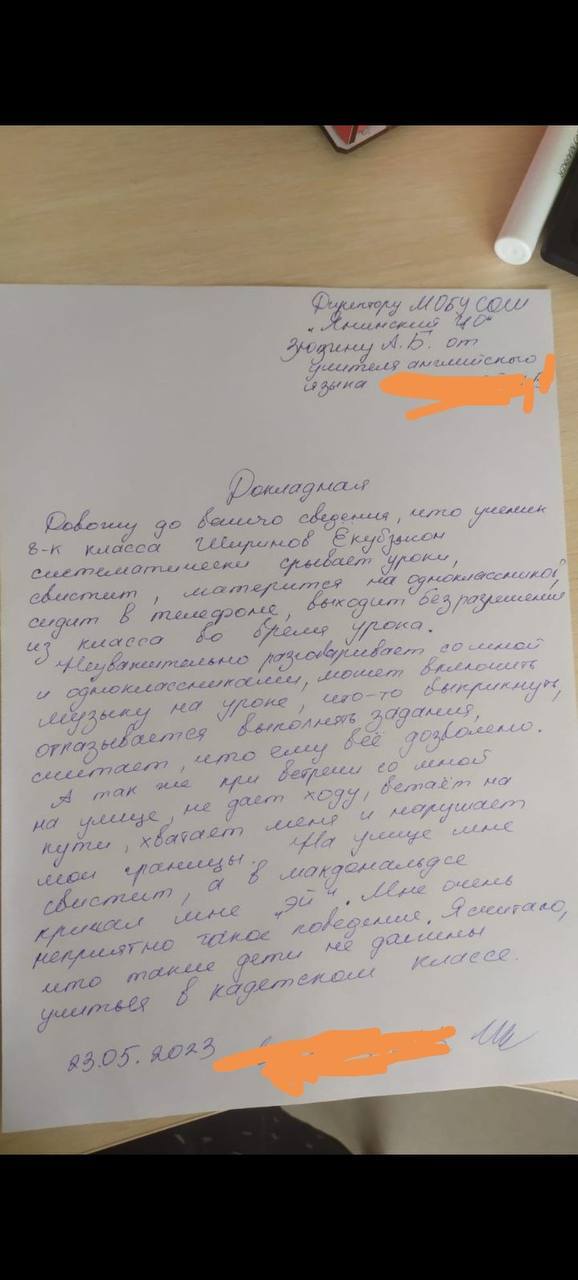 Директору МОБУ СОШ
"Янинский ЦО"
Зюзину А.Б. от
учителя английского
языка
Докладная
Довожу до вашего сведения, что ученик
8-к класса Ширинов Ёкубджон
систематически срывает уроки,
свистит, матерится на одноклассников,
сидит в телефоне, выходит без разрешения
из класса во время урока.
Неуважительно разговаривает со мной
и одноклассниками, может включить
музыку на уроке, что-то выкрикнуть,
отказывается выполнять задания,
считает, что ему всё дозволено.
А так же при встречи со мной
на улице, не даёт ходу, встаёт на
пути, хватает меня и нарушает
мои границы. На улице мне
свистит, а в макдональдсе
кричал мне "эй". Мне очень
неприятно такое поведение. Я считаю,
что такие дети не должны
учиться в кадетском классе.
23.05.2023